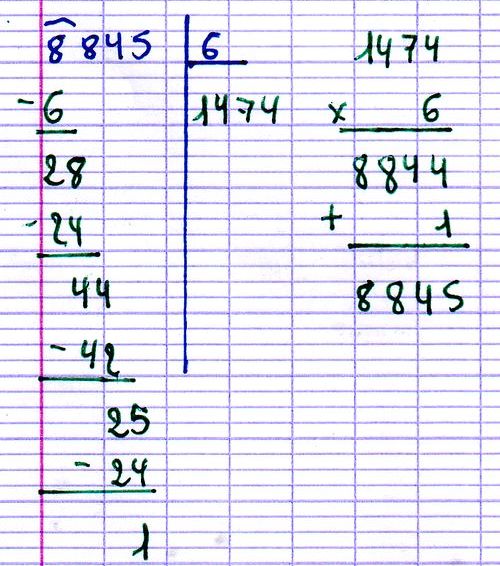 8845 6
- 6 1474
28
- 24
44
- 42
25
- 24
1
1474
x 6
8844
+ 1
8845